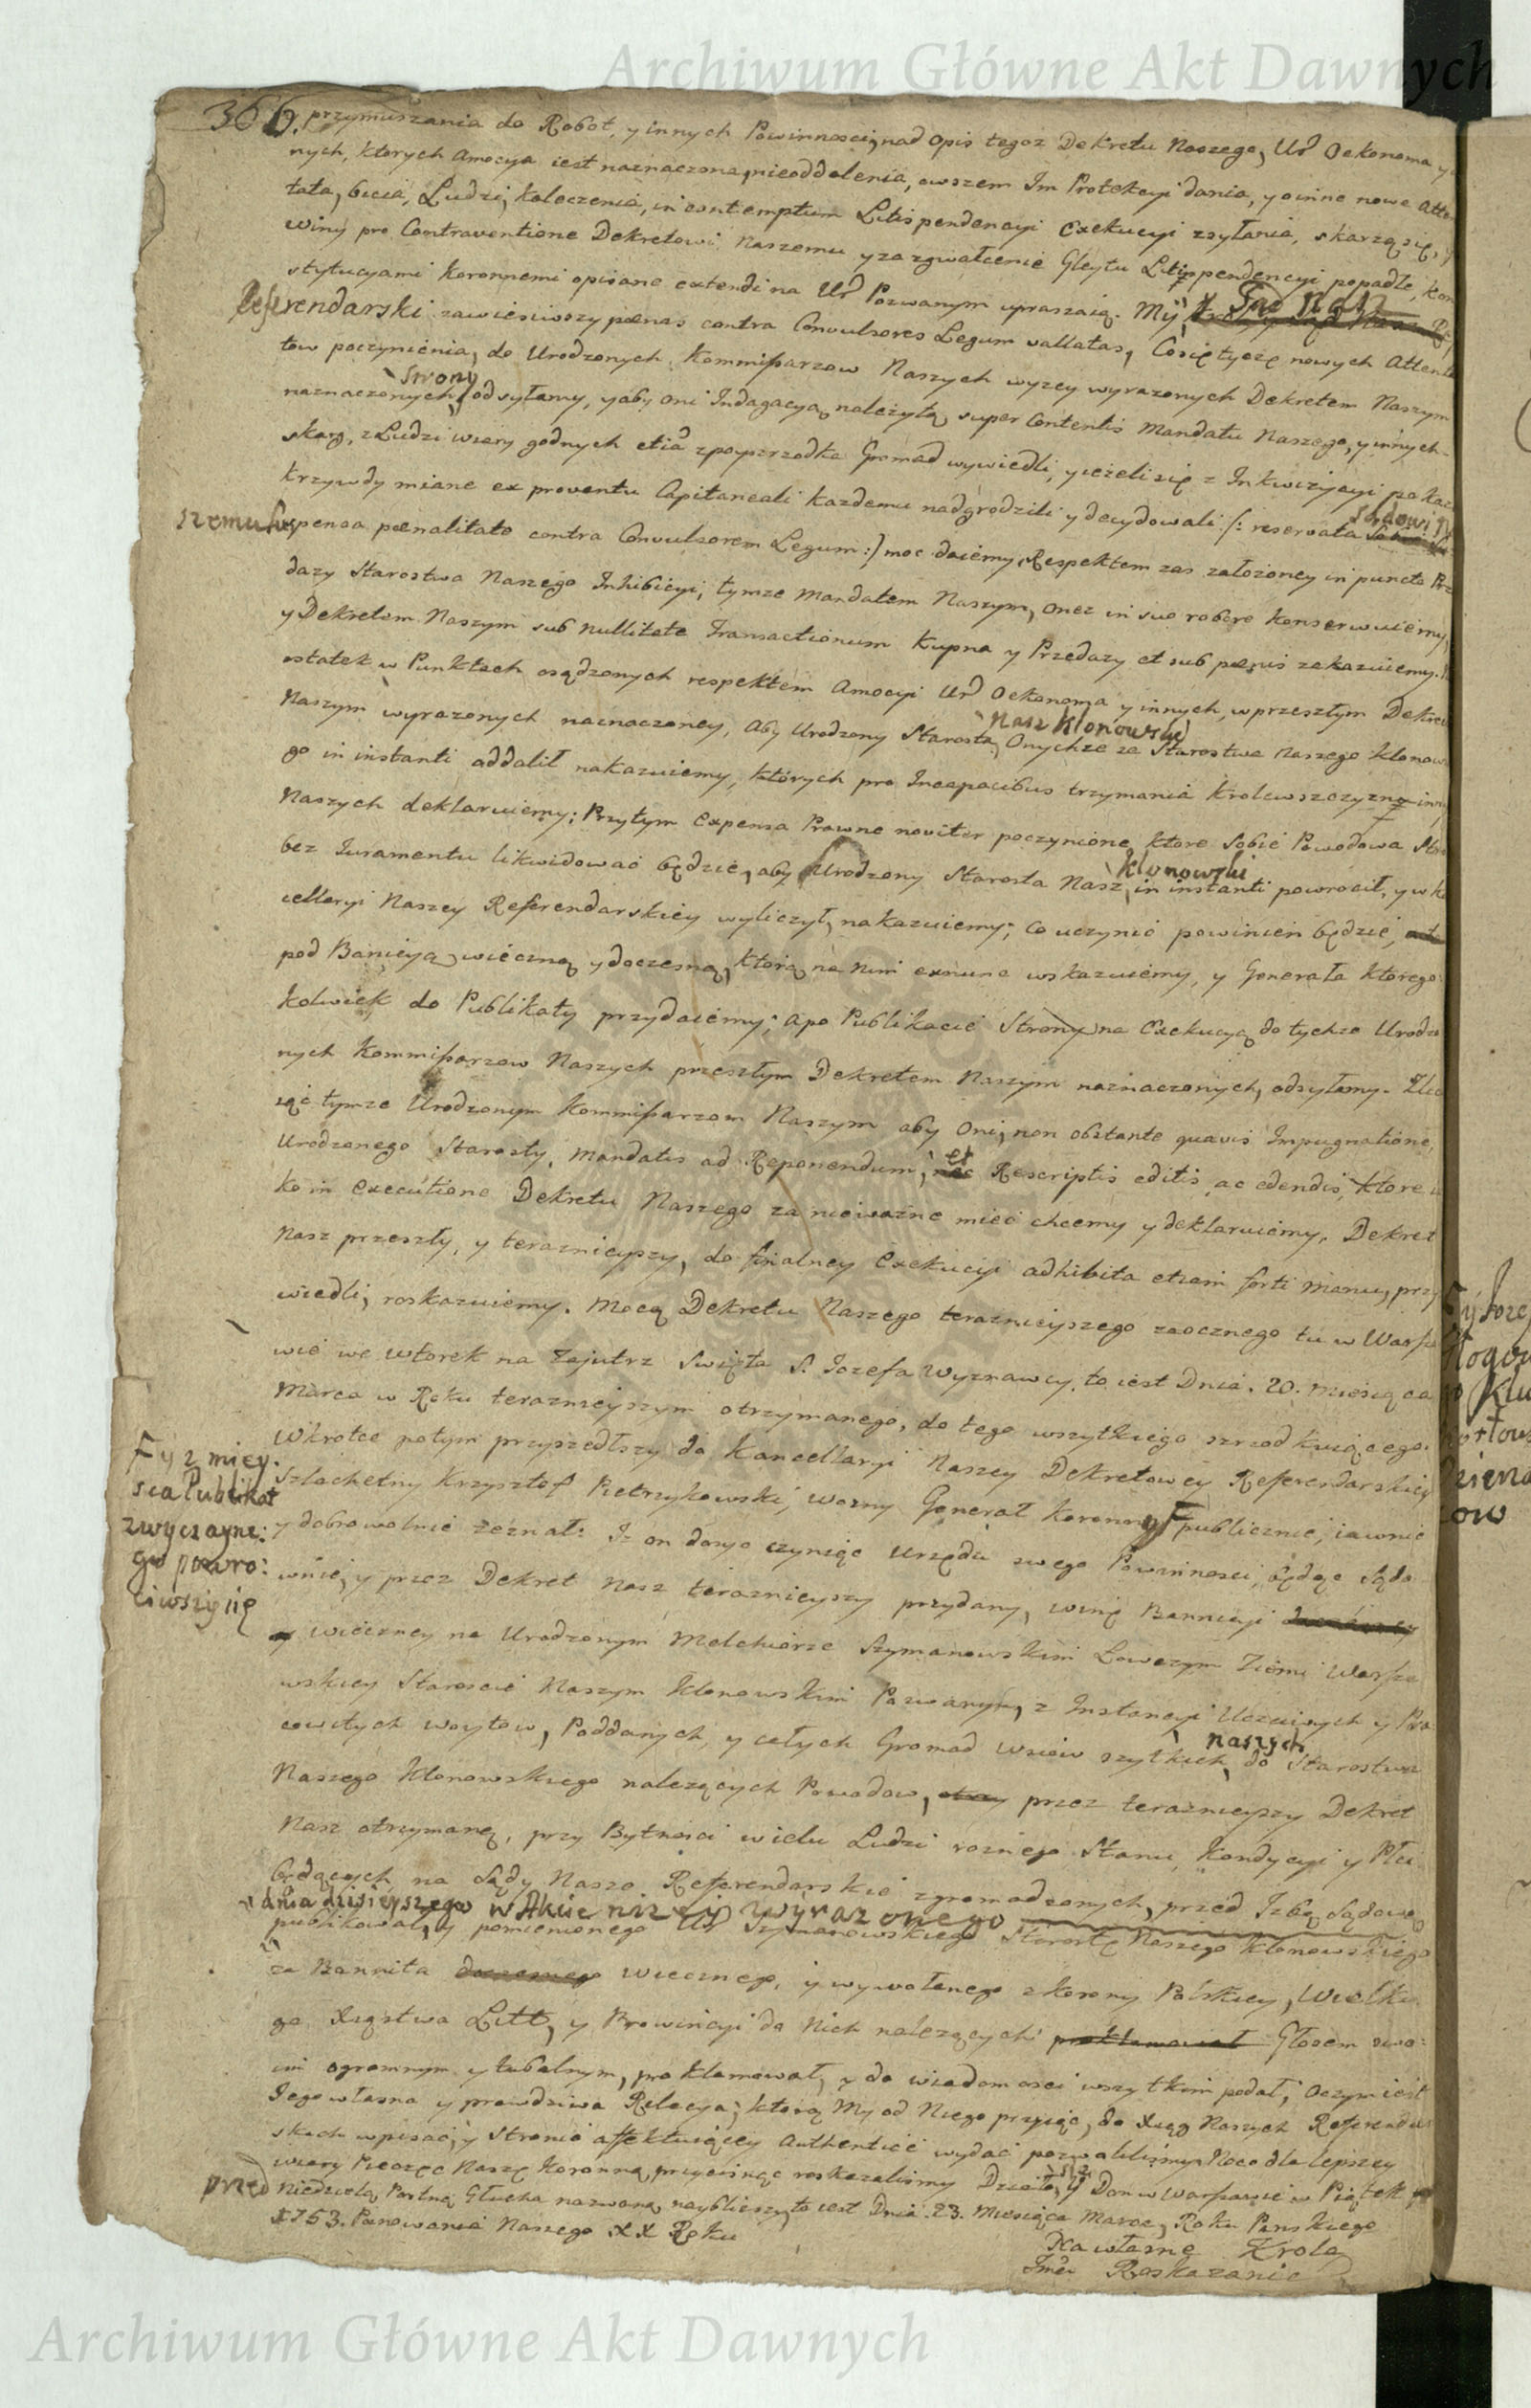 Archiwum Główne Akt Dawnych
366. przymuszania do Robot, y innych Powinnosci, nad opis tegoz Dekretu Naszego, Ur Oekonoma y
nych, ktorych Amocya iest naznaczona, nieoddalenia, owszem Im Protekcyi dania, y o inne nowe Atten
tata, bicia, Ludzi, kaleczenia, in contemptum Litispendencyi Exekucyi zsyłania, skarzą się, y
winy pro Contraventione Dekretowi Naszemu y za zgwałcenie Gleytu Litispendencyi popadłe, Kon
stytucyami Koronnemi opisane extendi na Ur Pozwanym upraszaią. My Sąd Nasz
Referendarski zawiesiwszy pœnas contra Convulsores Legum vallatas, Co się tycze nowych Attenta
tow poczynienia, do Urodzonych Kommissarzow Naszych wyzey wyrazonych Dekretem Naszym
naznaczonych strony odsyłamy, y aby oni Indagacyą należytą super Contentis Mandatu Naszego, y innych
skarg, z Ludzi wiary godnych etia z pospzrodka Gromad wywiedli, y ieżeli się z Inkwizycyi pokaz
krzywdy miane ex proventu Capitaneali kazdemu nadgrodzili y decydowali /: reservata Sądowi
szemu suspensa pœnalitate contra Convulsorem Legum :/ moc daiemy. Respektem zas założoney in puncto Prze
dazy Starostwa Naszego Inhibicyi, tymze Mandatem Naszym, onez in suo robore konserwuiemy,
y Dekretem Naszym sub nullitate Transactionum Kupna y Przedazy et sub pœnis zakazuiemy.
ostatek w Punktach osądzonych respektem Amocyi Ur Oekonoma y innych, w przeszłym Dekrecie
Naszym wyrazonych naznaczoney, Aby Urodzony Starosta Nasz Klonowski Onychze ze Starostwa Naszego Klonows
go in instanti oddalił nakazuiemy, ktörych pro Incapacibus trzymania Krolewszczyzn inn
Naszych deklaruiemy; Przytym Expensa Prawne noviter poczynione, ktore Sobie Powodowa Stro
bez Iuramentu likwidować będzie, aby Urodzony Starosta Nasz Klonowski in instanti powrocił, y w Kan
cellaryi Naszey Referendarskiey wyliczył, nakazuiemy; Co uczynic powinien będzie,
pod Banicyą wieczną y doczesną, ktorą na nim exnunc wskazuiemy, y Generała ktorego
kolwiek do Publikaty przydaiemy; a po Publikacie Strony na Exekucyą do tychze Urodzo
nych Kommissarzow Naszych przeszłym Dekretem Naszym naznaczonych, odsyłamy. Zlec
aiąc tymze Urodzonym Kommissarzom Naszym aby Oni, non obstante quavis Impugnatione,
Urodzonego Starosty, Mandatis ad Reponendum, et Rescriptis editis, ac edendis, ktore ia
ko in executione Dekretu Naszego za nieważne mieć chcemy y deklaruiemy, Dekret
Nasz przeszły, y teraznieyszy, do finalney Exekucyi adhibita etiam forti Manu, przy
wiedli, roskazuiemy. Mocą Dekretu Naszego teraznieyszego zaocznego tu w Warsza
wie we Wtorek na Zajutrz Swięta S. Iozefa Wyznawcy, to iest Dnia. 20. Miesiąca
Marca w Roku teraznieyszym otrzymanego, do tego wszytkiego szrzodkuiącego.
Wkrotce potym przyszedłszy do Kancellaryi Naszey Dekretowey Referendarskiey
Szlachetny Krzysztof Pietrzykowski, Wozny Generał Koronny F publicznie, iawnie
F y z miey.
sca Publikat
zwyczayne:
go powro:
ciwszy się
y dobrowolnie zeznał: Iz on dosyc czyniąc Urzędu swego Powinnosci, będąc Sądo
wnie, y przez Dekret Nasz teraznieyszy przydany, winę Bannicyi
wieczney na Urodzonym Melchiorze Szymanowskim Łowczym Ziemi Warsza
wskiey Staroscie Naszym Klonowskim Pozwanym, z Instancyi Uczciwych y Pra
cowitych Woytow, Poddanych, y całych Gromad Wsiow szytkich naszych do Starostwa
Naszego Klonowskiego nalezących Powodow, przez teraznieyszy Dekret
Nasz otrzymaną, przy Bytnosci wielu Ludzi roznego Stanu, Kondycyi y Płci
będących na Sądy Nasze Referendarskie zgromadzonych, przed Izbą Sądową
dnia dzisieyszego w Akcie nizey wyrazonego
publikował, y pomienionego Ur Szymanowskiego Starostę Naszego Klonowskiego
za Bannita doczesnego wiecznego, y wywołanego z Korony Polskiey, Wielkie
go Xięstwa Litt, y Prowincyi do Nich nalezących proklamował Głosem swo:
im ogromnym y tubalnym, proklamował, y do wiadomosci wszytkim podał; oczym iest
Iego własna y prawdziwa Relacya; ktorą My od Niego przyiąc, do Xiąg Naszych Referendar
skich wpisać, y Stronie affektuiącey Authentice wydać pozwolilismy. Naco dla lepszey
wiary Pieczęć Naszą Koronną przycisnąc roskazalismy. Działo się y Dan w Warszawie w Piątek
przed Niedzielą Postną Głucha nazwaną naybliszy, to iest Dnia. 23. Miesiąca Marca, Roku Panskiego
1753. Panowania Naszego XX Roku
Na własne Krola
Imci Roskazanie
Archiwum Główne Akt Dawnych